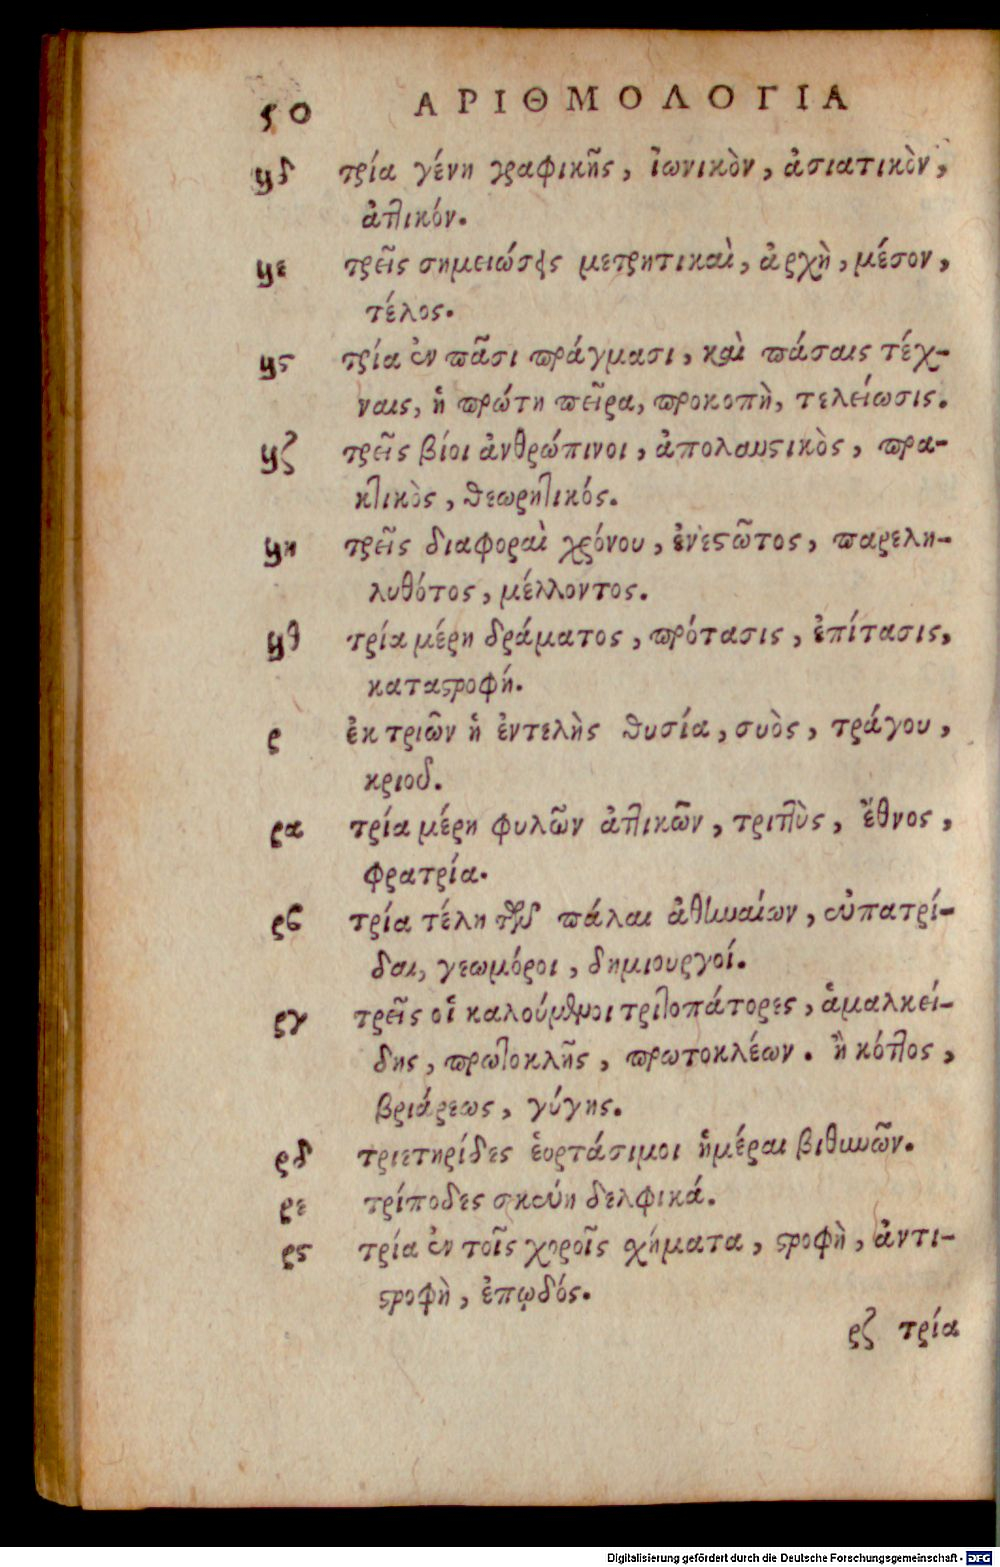 50 ΑΡΙΘΜΟΛΟΓΙΑ
ϟδ τρία γένη γραφικῆς, ἰωνικὸν, ἀσιατικὸν,
ἀττικόν.
ϟε τρεῖς σημειώσεις μετρητικαὶ, ἀρχὴ, μέσον,
τέλος.
ϟϛ τρία ἐν πᾶσι πράγμασι, καὶ πάσαις τέχ-
ναις, ἡ πρώτη πεῖρα, προκοπὴ, τελείωσις.
ϟζ τρεῖς βίοι ἀνθρώπινοι, ἀπολαυϛικὸς, πρα-
κτικὸς, θεωρητικός.
ϟη τρεῖς διαφοραὶ χρόνου, ἐνεϛῶτος, παρελη-
λυθότος, μέλλοντος.
ϟθ τρία μέρη δράματος, πρότασις, ἐπίτασις,
καταϛροφή.
ρ ἐκ τριῶν ἡ ἐντελὴς θυσία, συὸς, τράγου,
κριοῦ.
ρα τρία μέρη φυλῶν ἀττικῶν, τριττὺς, ἔθνος,
φρατρία.
ρβ τρία τέλη τῶν πάλαι ἀθηναίων, εὐπατρί-
δαι, γεωμόροι, δημιουργοί.
ργ τρεῖς οἵ καλούμενοι τριτοπάτορες, ἀμαλκεί-
δης, πρωτοκλῆς, πρωτοκλέων. ἢ κόττος,
βριάρεως, γύγης.
ρδ τριετηρίδες ἑορτάσιμοι ἡμέραι βιθυνῶν.
ρε τρίποδες σκεύη δελφικά.
ρϛ τρία ἐν τοῖς χοροῖς σχήματα, ϛροφὴ, ἀντι-
ϛροφὴ, ἐπῳδός.
ρζ τρία
Digitalisierung gefördert durch die Deutsche Forschungsgemeinschaft - DFG